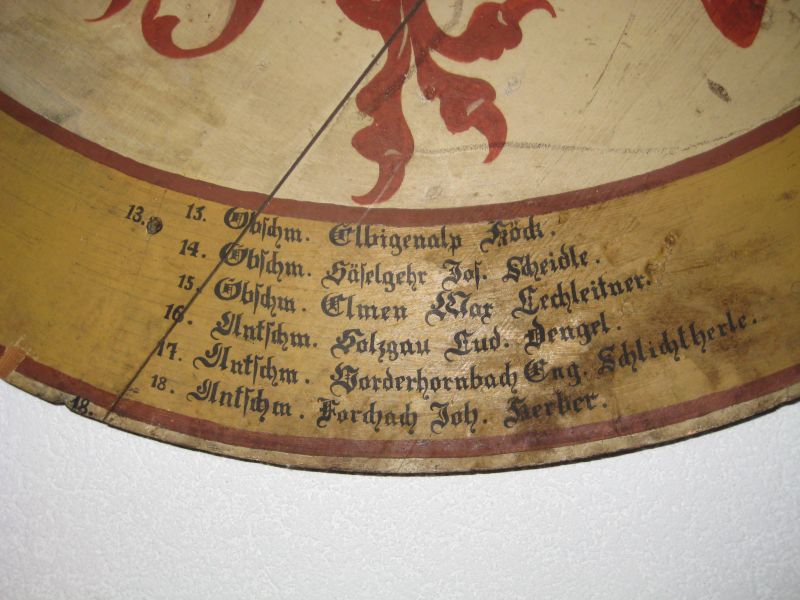 13. 13. Obschm. Elbigenalp Köck.
14. Obschm. Häselgehr Jos. Scheidle.
15. Obschm. Elmen Max Lechleitner.
16. Untschm. Holzgau Lud. Dengel.
17. Untschm. Vorderhornbach Eng. Schlichtherle.
18. Untschm. Forchach Joh. Kerber.
18.